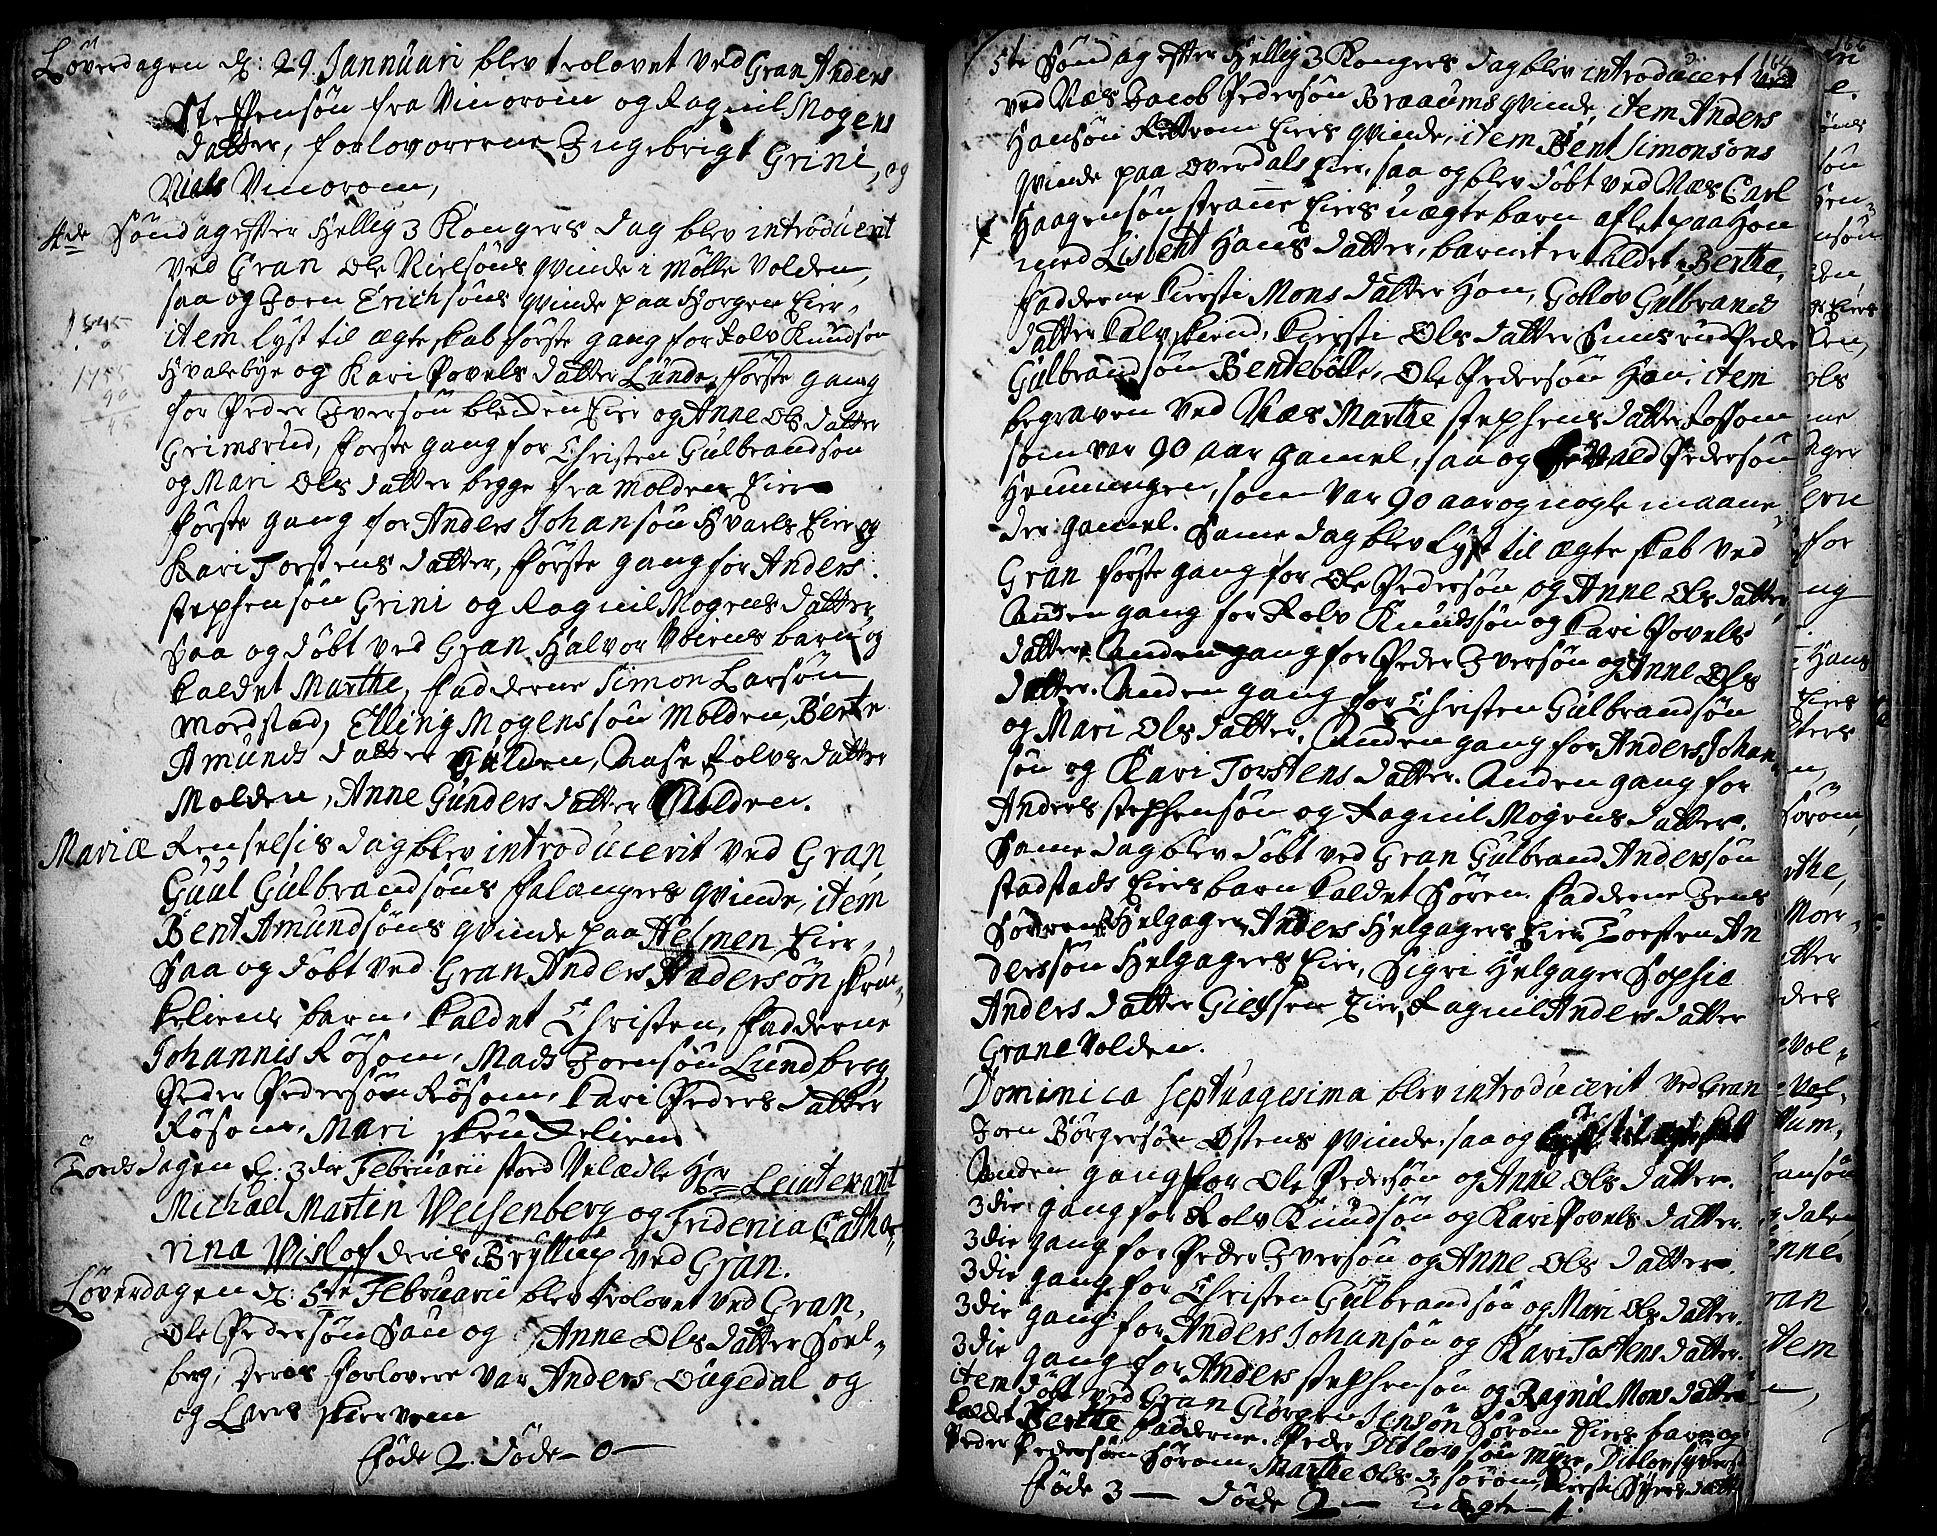 Löverdagen d: 29 Jannuari blev trolovet ved Gran Anders
Steffensön fra Vinorom og Ragnil Mogens
datter, forlovererne Ingebrigt Grini, og
Niels Vinorom,
4de Söndag efter Hellig 3 Kongers dag blev introducerit
ved Gran Ole Nielsöns qvinde i Mölle Volden,
saa og Joen Erichsöns qvinde paa Horgen Eier,
item lyst til ægteskab förste gang for Rolv Knudsen
Hvalebye og Kari Povels datter Lunde, förste gang
for Peder Iversön Eier og Anne Ols datter
Grimsrud, förste gang for Christen Gulbrandsön
og Mari Ols datter begge fra Molden Eier
förste gang for Anders Johansön Hvaels Eier og
Kari Torstens datter, förste gang for Anders
Stephensön Grini og Ragnil Mogens datter,
Saa og döbt ved Gran Halvor Voiens barn og
kaldet Marthe, fadderne Simon Larsön
Mordstad, Elling Mogenssön Molden, Berte
Amunds datter Gulden, Aase Rolvs datter
Molden, Anne Gunders datter Molden.
Mariæ Renselsis dag blev introducerit ved Gran
Guul Gulbrandsöns Falangers qvinde, item
Bent Amundsöns qvinde paa Helmen Eier,
Saa og döbt ved Gran Anders Andersön Skrun-
keliens barn, kaldet Christen, fadderne
Johannis Rösom, Mads Joensön Lundberg
Peder Pedersön Rösom, Kari Peders datter
Rösom, Mari Skrunkelien
Torsdagen d. 3die Februarii stod Velædle Hr Leutenant
Michael Martin Weisenberg og Fridericia Catha-
rina Wislof deris Bryllup ved Gran.
Löverdagen d: 5te Februarii blev trolovet ved Gran,
Ole Pedersön Sau og Anne Ols datter Soel-
berg, deres forlovere var Anders Ougedal og
og Lars Skiervom
föde 2. döde - 0 -
1845
1755
90
45
5te Söndag efter Hellig 3 Kongers dag blev introducert
164
ved Næs Jacob Pedersön Braaums qvinde, item Anders
Hansön Rettrom Eiers qvinde, item Bent Simonsöns
qvinde paa Overdals Eier, saa og blev döbt ved Næs Carl
Haagensön Strane Eiers uægte barn aflet paa Hon
med Lisbent Hans datter, barnet er kaldet Berthe,
fadderne Kiersti Mons datter Hon, Gollov Gulbrands
datter Kalvskind, Kiersti Ols datter Peder
Gulbrandsön Bentebölle, Ole Pedersön Hon, item
begraven ved Næs Marthe Stephens datter Rossom
som var 90 aar gamel, saa og Pedersön
Henningen, som var 90 aar og nogle maane-
der gamel. Same dag blev lyst til ægteskab ved
Gran förste gang for Ole Pedersön og Anne Ols datter,
Anden gang for Rolv Knudsön og Kari Povels
datter, Anden gang for Peder Iversön og Anne Ols
datter. Anden gang for Christen Gulbrandsön
og Mari Ols datter, Anden gang for Anders Johan-
sön og Kari Torstens datter. Anden gang for
Anders Stephensön og Ragnil Mogens datter.
Same dag blev döbt ved Gran Gulbrand Anderssön
Stadstads Eiers barn kaldet Sören. fadderne Jens
Sörensen Helgager, Anders Helgagers Eier, Torsten An
derssön Helgagers Eier, Sigri Helgager Sophie
Anders datter Eier, Ragnil Anders datter
Grane Volden.
Dominica Septuagesima blev introducerit ved Gran
Joen Börgersön Östens qvinde, saa og lyst til ægteskab
Anden gang for Ole Pedersön og Anne Ols datter.
3die gang for Rolv Knudsön og Kari Povels datter.
3die gang for Peder Iversön og Anne Ols datter.
3die gang for Christen Gulbrandsön og Mari Ols datter.
3die gang for Anders Johansön og Kari Tostens datter.
3die gang for Anders Stephensön og Ragnil Mons datter
item döbt ved Gran Giörgen Jensön Sörom Eiers barn og
kaldet Berthe fadderne, Peder Ditlovsön Myre, Ditlov
Peder Pedersön Sörom, Marthe Ols d Sörom, Kiersti datt
föde 3 - döde 2 - uægte - 1.
166